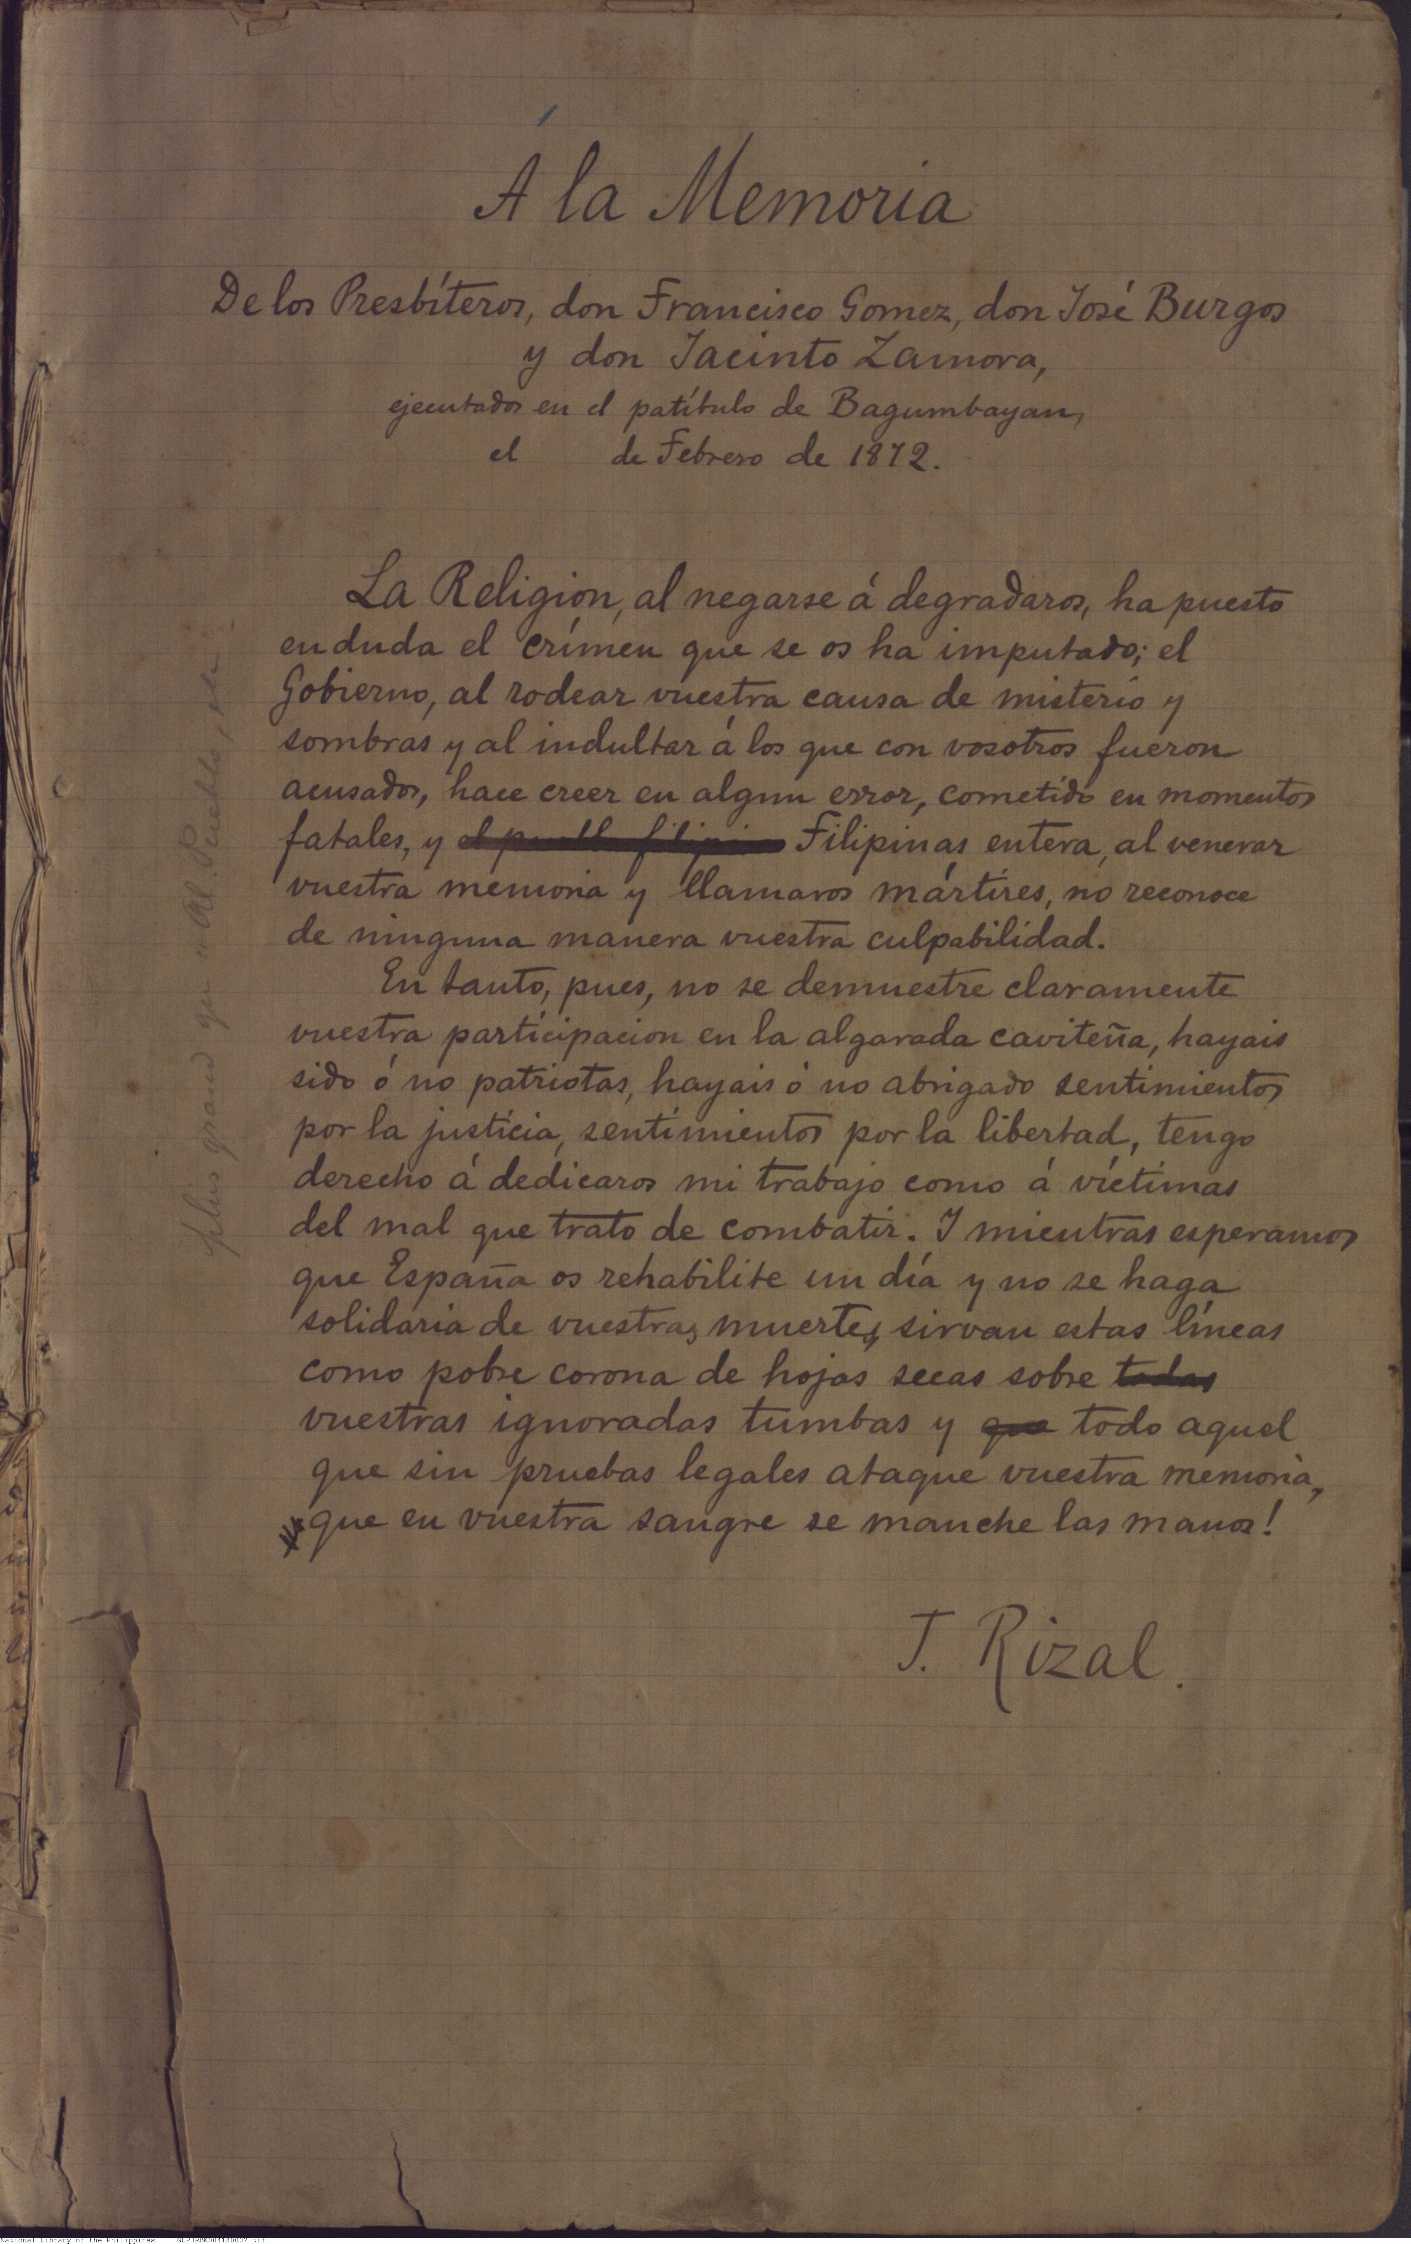 Á la Memoria
De los Presbíteros, don Francisco Gomez, don José Burgos
y don Jacinto Zamora,
ejecutados en el patíbulo de Bagumbayan,
el de Febrero de 1872.
La Religion, al negarse á degradaros, ha puesto
en duda el crímen que se os ha imputado; el
Gobierno, al rodear vuestra causa de misterio y
sombras y al indultar á los que con vosotros fueron
acusados, hace creer en algun error, cometido en momentos
fatales, y el pueblo filipino Filipinas entera, al venerar
vuestra memoria y llamaros mártires, no reconoce
de ninguna manera vuestra culpabilidad.
En tanto, pues, no se demuestre claramente
vuestra participacion en la algarada caviteña, hayais
sido ó no patriotas, hayais ó no abrigado sentimientos
por la justicia, sentimientos por la libertad, tengo
derecho á dedicaros mi trabajo como á víctimas
del mal que trato de combatir. Y mientras esperamos
que España os rehabilite un día y no se haga
solidaria de vuestra muerte, sirvan estas líneas
como pobre corona de hojas secas sobre todas
vuestras ignoradas tumbas y que todo aquel
que sin pruebas legales ataque vuestra memoria,
que en vuestra sangre se manche las manos!
J. Rizal.
plus grand que Al Pueblo, etc
National Library of the Philippines